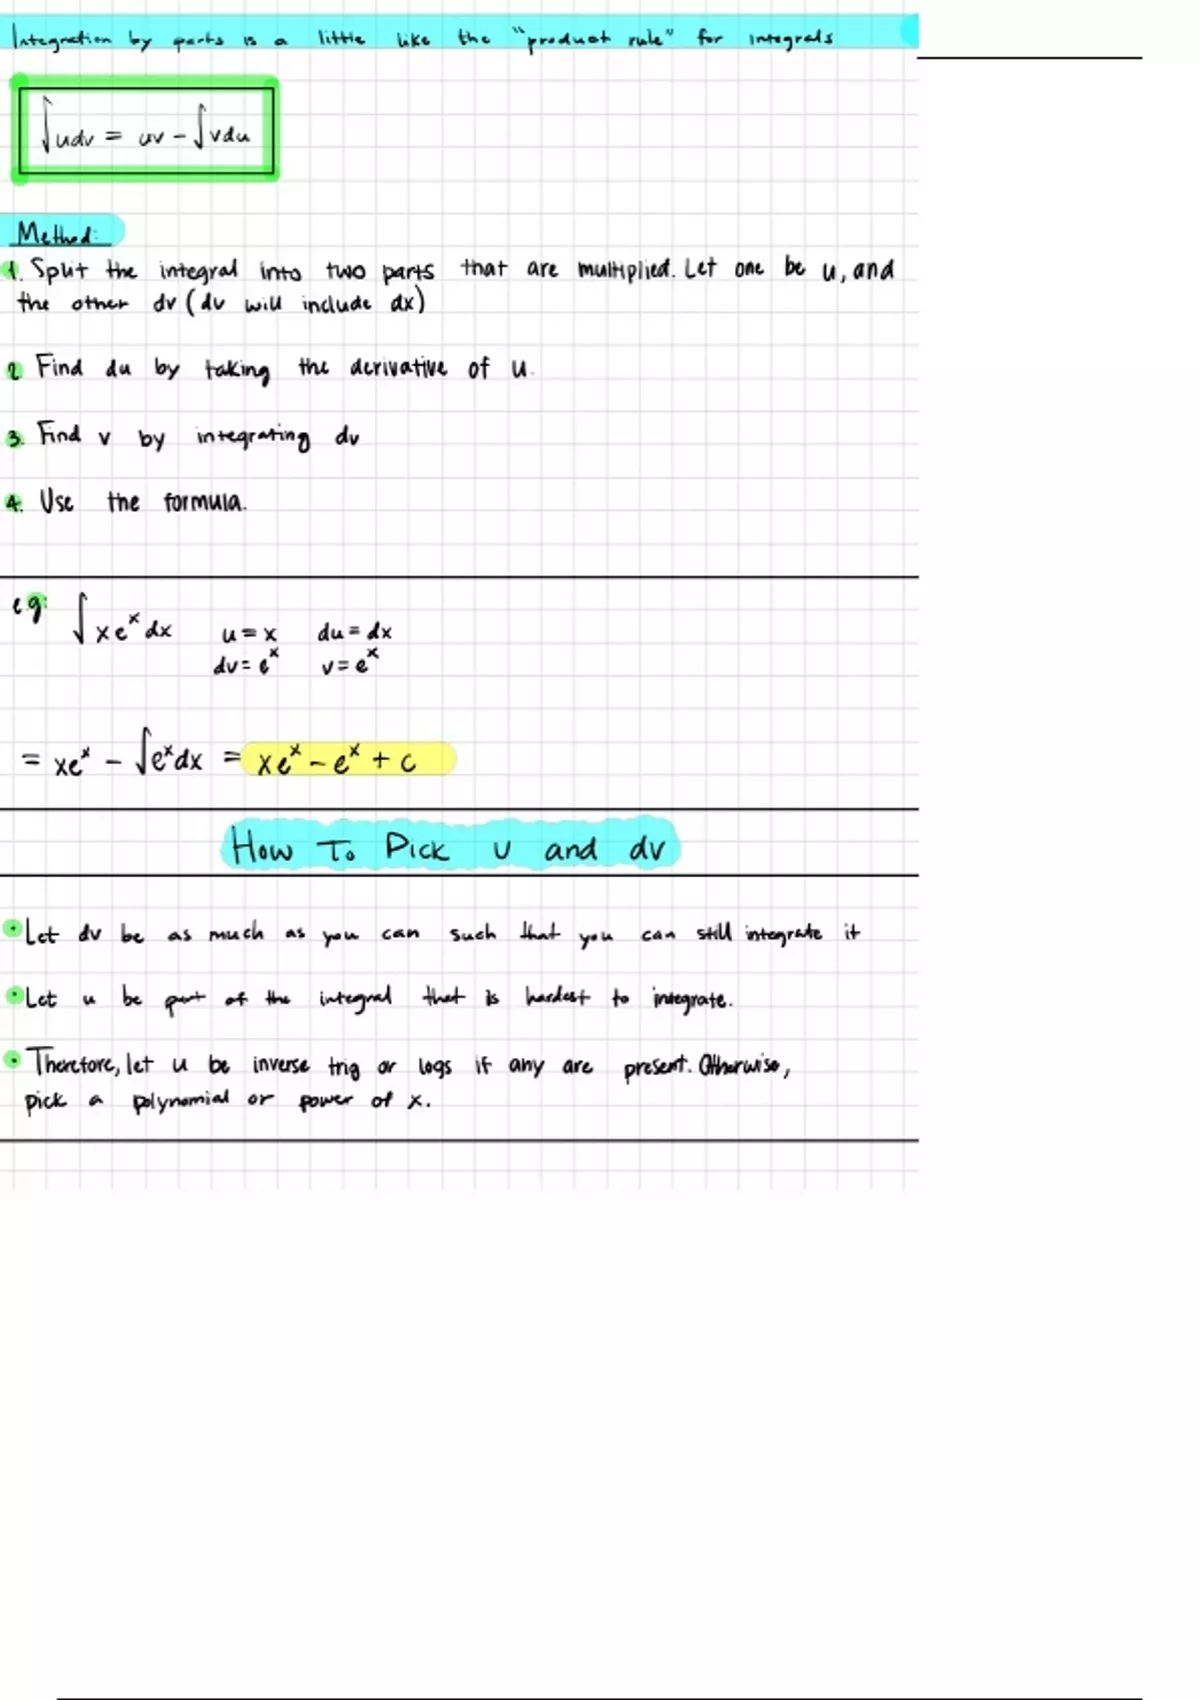 Integration by parts is a little like the "product rule" for integrals
∫udv = uv - ∫vdu
Method:
1. Split the integral into two parts that are multiplied. Let one be u, and
the other dv (dv will include dx)
2. Find du by taking the derivative of u.
3. Find v by integrating dv
4. Use the formula.
eg: ∫xeˣdx u = x du = dx
dv = eˣ v = eˣ
= xeˣ - ∫eˣdx = xeˣ - eˣ + c
How To Pick u and dv
• Let dv be as much as you can such that you can still integrate it
• Let u be part of the integral that is hardest to integrate.
• Therefore, let u be inverse trig or logs if any are present. Otherwise,
pick a polynomial or power of x.